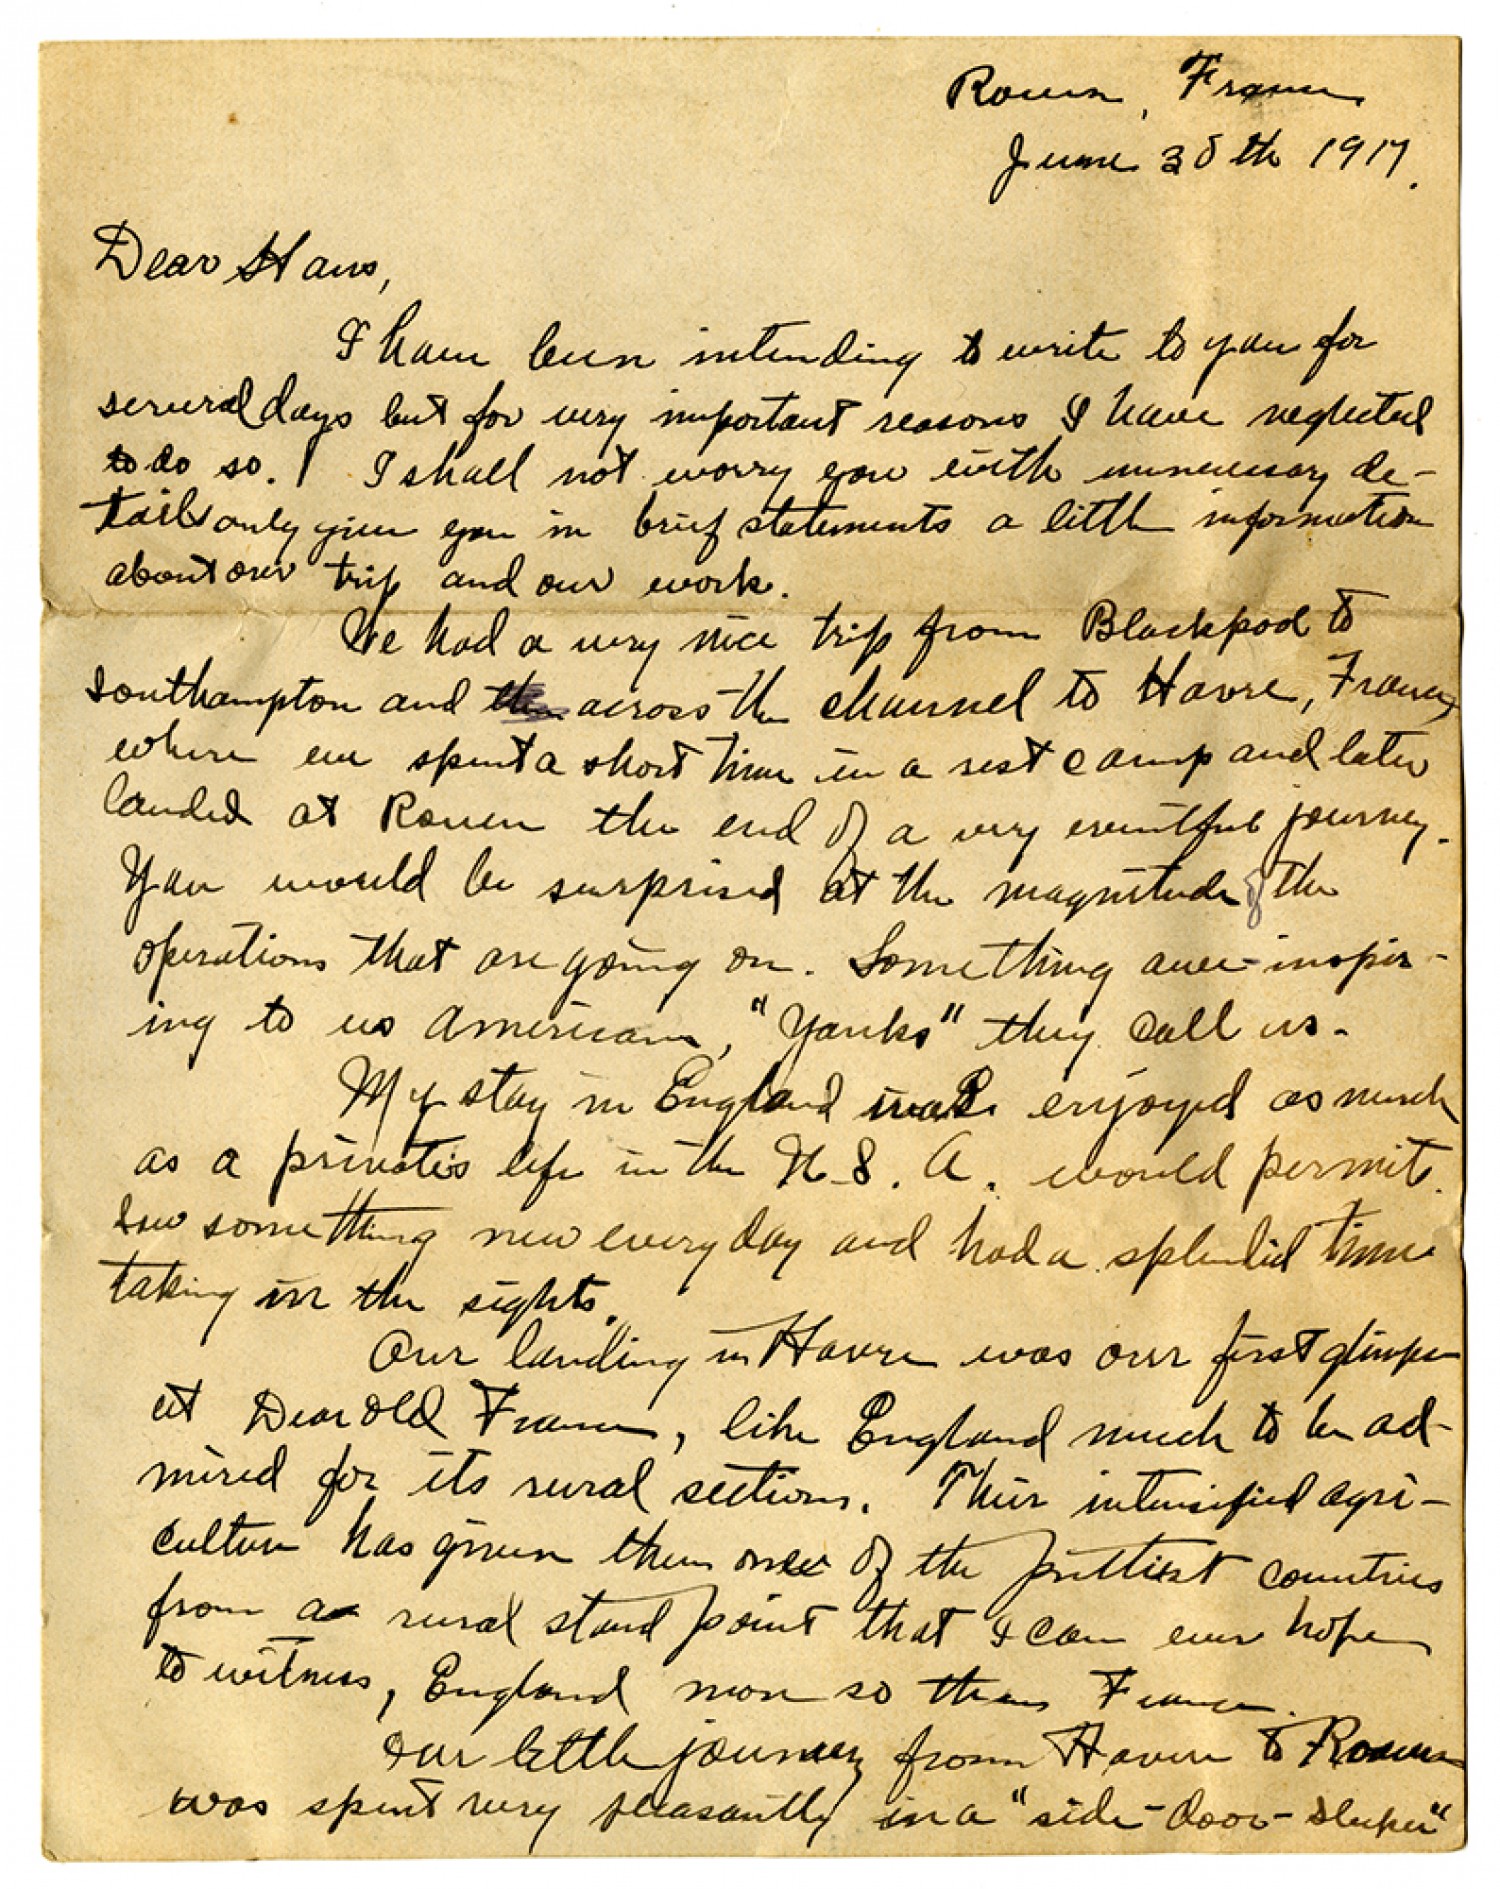 Rouen, France
June 30th 1917.
Dear Hans,
I have been intending to write to you for
several days but for very important reasons I have neglected
to do so. I shall not worry you with unnecessary de-
tails only give you in brief statements a little information
about our trip and our work.
We had a very nice trip from Blackpool to
Southampton and across the channel to Havre, France,
where we spent a short time in a rest camp and later
landed at Rouen the end of a very eventful journey.
You would be surprised at the magnitude of the
operations that are going on. Something awe-inspir-
ing to us Americans, "Yanks" they call us.
My stay in England was enjoyed as much
as a private's life in the U.S.A. would permit.
Saw something new every day and had a splendid time
taking in the sights.
Our landing in Havre was our first glimpse
at Dear old France, like England much to be ad-
mired for its rural sections. Their intensified agri-
culture has given them one of the prettiest countries
from a rural stand point that I can ever hope
to witness, England more so than France.
Our little journey from Havre to Rouen
was spent very pleasantly in a "side-door-sleeper"